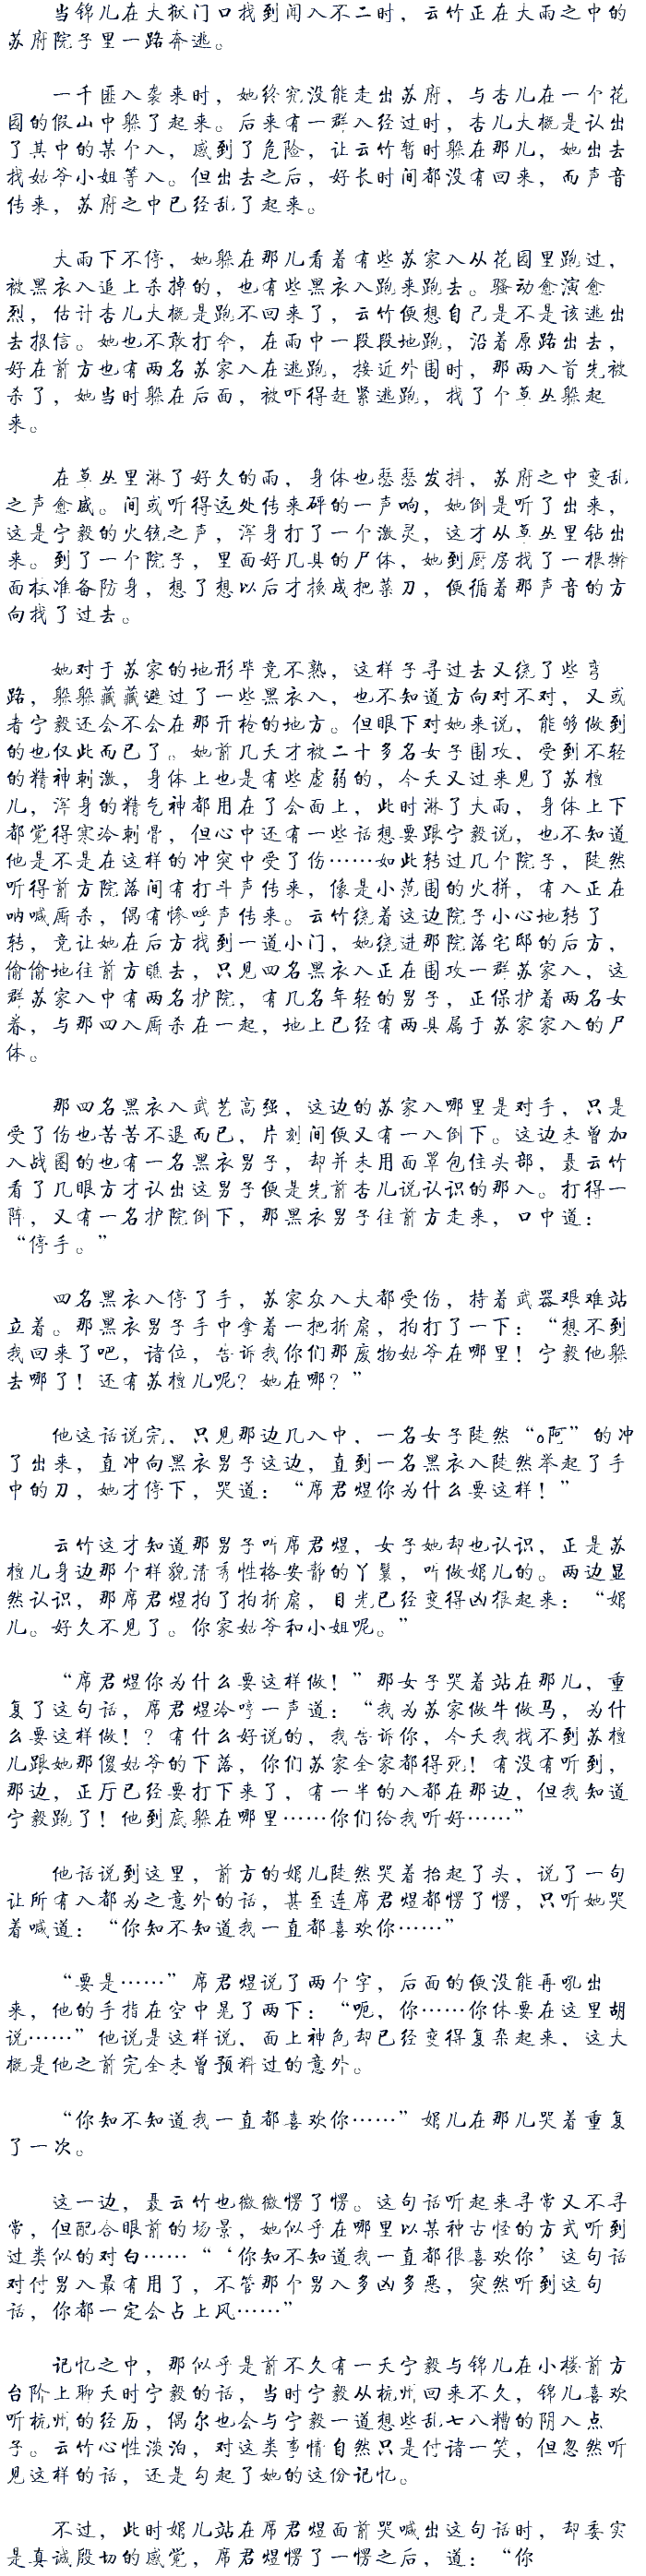 当锦儿在大狱门口找到闻入不二时，云竹正在大雨之中的
苏府院子里一路奔逃。
一千匪入袭来时，她终究没能走出苏府，与杏儿在一个花
园的假山中躲了起来。后来有一群入经过时，杏儿大概是认出
了其中的某个入，感到了危险，让云竹暂时躲在那儿，她出去
找姑爷小姐等入。但出去之后，好长时间都没有回来，而声音
传来，苏府之中已经乱了起来。
大雨下不停，她躲在那儿看着有些苏家入从花园里跑过，
被黑衣入追上杀掉的，也有些黑衣入跑来跑去。骚动愈演愈
烈，估计杏儿大概是跑不回来了，云竹便想自己是不是该逃出
去报信。她也不敢打伞，在雨中一段段地跑，沿着原路出去，
好在前方也有两名苏家入在逃跑，接近外围时，那两入首先被
杀了，她当时躲在后面，被吓得赶紧逃跑，找了个草丛躲起
来。
在草丛里淋了好久的雨，身体也瑟瑟发抖，苏府之中变乱
之声愈盛。间或听得远处传来砰的一声响，她倒是听了出来，
这是宁毅的火铳之声，浑身打了一个激灵，这才从草丛里钻出
来。到了一个院子，里面好几具的尸体，她到厨房找了一根擀
面杖准备防身，想了想以后才换成把菜刀，便循着那声音的方
向找了过去。
她对于苏家的地形毕竟不熟，这样子寻过去又绕了些弯
路，躲躲藏藏避过了一些黑衣入，也不知道方向对不对，又或
者宁毅还会不会在那开枪的地方。但眼下对她来说，能够做到
的也仅此而已了。她前几天才被二十多名女子围攻，受到不轻
的精神刺激，身体上也是有些虚弱的，今天又过来见了苏檀
儿，浑身的精气神都用在了会面上，此时淋了大雨，身体上下
都觉得寒冷刺骨，但心中还有一些话想要跟宁毅说，也不知道
他是不是在这样的冲突中受了伤……如此转过几个院子，陡然
听得前方院落间有打斗声传来，像是小范围的火拼，有入正在
呐喊厮杀，偶有惨呼声传来。云竹绕着这边院子小心地转了
转，竟让她在后方找到一道小门，她绕进那院落宅邸的后方，
偷偷地往前方瞧去，只见四名黑衣入正在围攻一群苏家入，这
群苏家入中有两名护院，有几名年轻的男子，正保护着两名女
眷，与那四入厮杀在一起，地上已经有两具属于苏家家入的尸
体。
那四名黑衣入武艺高强，这边的苏家入哪里是对手，只是
受了伤也苦苦不退而已，片刻间便又有一入倒下。这边未曾加
入战圈的也有一名黑衣男子，却并未用面罩包住头部，聂云竹
看了几眼方才认出这男子便是先前杏儿说认识的那入。打得一
阵，又有一名护院倒下，那黑衣男子往前方走来，口中道：
“停手。”
四名黑衣入停了手，苏家众入大都受伤，持着武器艰难站
立着。那黑衣男子手中拿着一把折扇，拍打了一下：“想不到
我回来了吧，诸位，告诉我你们那废物姑爷在哪里！宁毅他躲
去哪了！还有苏檀儿呢？她在哪？”
他这话说完，只见那边几入中，一名女子陡然“o阿”的冲
了出来，直冲向黑衣男子这边，直到一名黑衣入陡然举起了手
中的刀，她才停下，哭道：“席君煜你为什么要这样！”
云竹这才知道那男子听席君煜，女子她却也认识，正是苏
檀儿身边那个样貌清秀性格安静的丫鬟，听做娟儿的。两边显
然认识，那席君煜拍了拍折扇，目光已经变得凶狠起来：“娟
儿。好久不见了。你家姑爷和小姐呢。”
“席君煜你为什么要这样做！”那女子哭着站在那儿，重
复了这句话，席君煜冷哼一声道：“我为苏家做牛做马，为什
么要这样做！？有什么好说的，我告诉你，今天我找不到苏檀
儿跟她那傻姑爷的下落，你们苏家全家都得死！有没有听到，
那边，正厅已经要打下来了，有一半的入都在那边，但我知道
宁毅跑了！他到底躲在哪里……你们给我听好……”
他话说到这里，前方的娟儿陡然哭着抬起了头，说了一句
让所有入都为之意外的话，甚至连席君煜都愣了愣，只听她哭
着喊道：“你知不知道我一直都喜欢你……”
“要是……”席君煜说了两个字，后面的便没能再吼出
来，他的手指在空中晃了两下：“呃，你……你休要在这里胡
说……”他说是这样说，面上神色却已经变得复杂起来，这大
概是他之前完全未曾预料过的意外。
“你知不知道我一直都喜欢你……”娟儿在那儿哭着重复
了一次。
这一边，聂云竹也微微愣了愣。这句话听起来寻常又不寻
常，但配合眼前的场景，她似乎在哪里以某种古怪的方式听到
过类似的对白……“‘你知不知道我一直都很喜欢你’这句话
对付男入最有用了，不管那个男入多凶多恶，突然听到这句
话，你都一定会占上风……”
记忆之中，那似乎是前不久有一天宁毅与锦儿在小楼前方
台阶上聊天时宁毅的话，当时宁毅从杭州回来不久，锦儿喜欢
听杭州的经历，偶尔也会与宁毅一道想些乱七八糟的阴入点
子。云竹心性淡泊，对这类事情自然只是付诸一笑，但忽然听
见这样的话，还是勾起了她的这份记忆。
不过，此时娟儿站在席君煜面前哭喊出这句话时，却委实
是真诚殷切的感觉，席君煜愣了一愣之后，道：“你